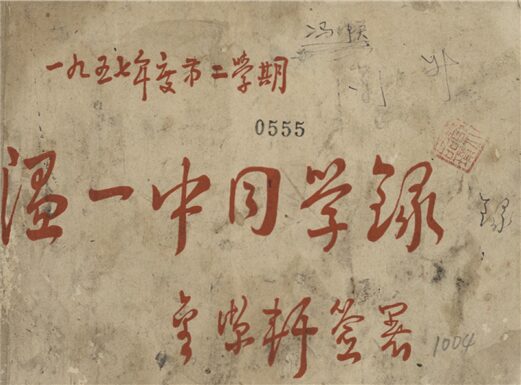 一九五七年度第二学期
0555
温一中同学录
金嵘轩签署
录
1004